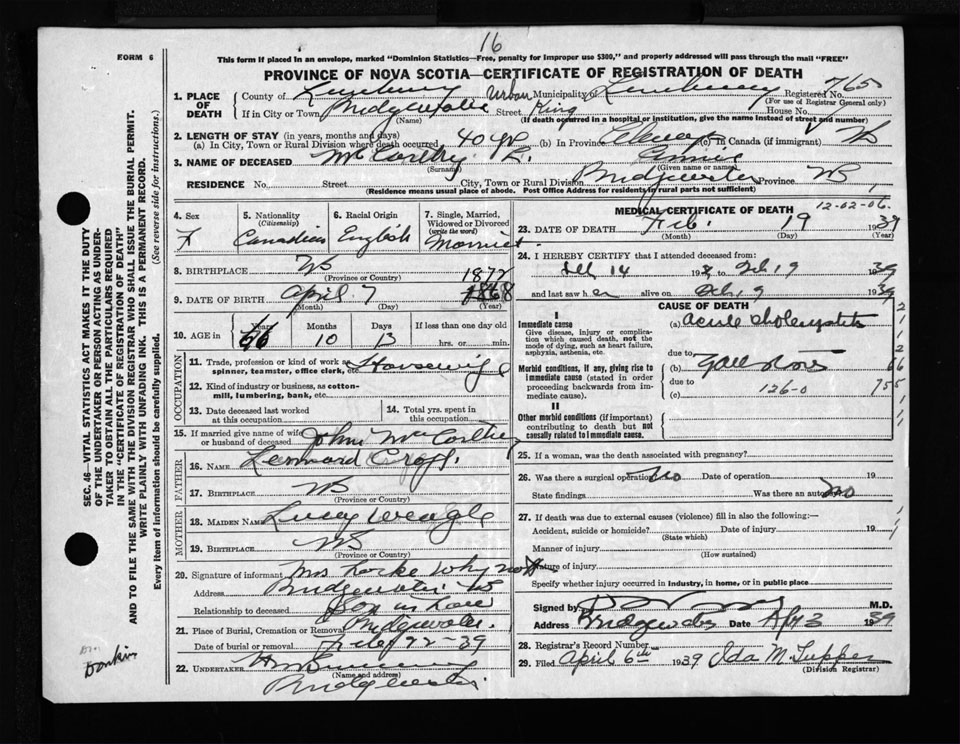 16
FORM 6
This form if placed in an envelope, marked "Dominion Statistics—Free, penalty for improper use $300," and properly addressed will pass through the mail "FREE"
PROVINCE OF NOVA SCOTIA—CERTIFICATE OF REGISTRATION OF DEATH
1. PLACE OF DEATH
County of Lunenburg Urban Municipality of Lunenburg Registered No. 765
(For use of Registrar General only)
If in City or Town Bridgewater Street King House No.
(Name) (If death occurred in a hospital or institution, give the name instead of street and number)
2. LENGTH OF STAY (in years, months and days)
(a) In City, Town or Rural Division where death occurred 40 yr (b) In Province Always (c) In Canada (if immigrant) NS
3. NAME OF DECEASED McCarthy L. Annie
(Surname) (Given name or names)
RESIDENCE No. Street City, Town or Rural Division Bridgewater Province NS
(Residence means usual place of abode. Post Office Address for residents in rural parts not sufficient)
4. Sex F
5. Nationality (Citizenship) Canadian
6. Racial Origin English
7. Single, Married, Widowed or Divorced (write the word) Married
8. BIRTHPLACE NS
(Province or Country)
1872
9. DATE OF BIRTH April 7 1868
(Month) (Day) (Year)
10. AGE in Years 66 Months 10 Days 13 If less than one day old hrs. or min.
OCCUPATION
11. Trade, profession or kind of work as spinner, teamster, office clerk, etc. Housewife
12. Kind of industry or business, as cotton-mill, lumbering, bank, etc.
13. Date deceased last worked at this occupation
14. Total yrs. spent in this occupation
15. If married give name of wife or husband of deceased John McCarthy
FATHER
16. Name Lennard Croft
17. Birthplace NS
(Province or Country)
MOTHER
18. Maiden Name Lucy Wengle
19. Birthplace NS
(Province or Country)
20. Signature of informant Mrs Whynott
Address Bridgewater NS
Relationship to deceased in law
21. Place of Burial, Cremation or Removal Bridgewater
Date of burial or removal Feb 22-39
22. UNDERTAKER
(Name and address)
Bridgewater
MEDICAL CERTIFICATE OF DEATH 12-02-06.
23. DATE OF DEATH Feb. 19 1939
(Month) (Day) (Year)
24. I HEREBY CERTIFY that I attended deceased from:
14 193 Feb 19 1939
and last saw her alive on Feb 19 1939
CAUSE OF DEATH
I
Immediate cause
Give disease, injury or complication which caused death, not the mode of dying, such as heart failure, asphyxia, asthenia, etc.
(a) acute cholecystitis
due to
Morbid conditions, if any, giving rise to immediate cause (stated in order proceeding backwards from immediate cause).
(b) Gall stones
due to
(c) 126-0
II
Other morbid conditions (if important) contributing to death but not causally related to immediate cause.
25. If a woman, was the death associated with pregnancy?
26. Was there a surgical operation? No Date of operation 19
State findings Was there an autopsy? No
27. If death was due to external causes (violence) fill in also the following:—
Accident, suicide or homicide? Date of injury 19
(State which)
Manner of injury
(How sustained)
Nature of injury
Specify whether injury occurred in industry, in home, or in public place
Signed by M.D.
Address Bridgewater Date Apr 3 1939
28. Registrar's Record Number
29. Filed April 6th 1939 Ida M. Tupper
(Division Registrar)
SEC. 46—VITAL STATISTICS ACT MAKES IT THE DUTY OF THE UNDERTAKER OR PERSON ACTING AS UNDERTAKER TO OBTAIN ALL THE PARTICULARS REQUIRED IN THE "CERTIFICATE OF REGISTRATION OF DEATH" AND TO FILE THE SAME WITH THE DIVISION REGISTRAR WHO SHALL ISSUE THE BURIAL PERMIT.
WRITE PLAINLY WITH UNFADING INK. THIS IS A PERMANENT RECORD.
Every item of information should be carefully supplied. (See reverse side for instructions.)
Donkin